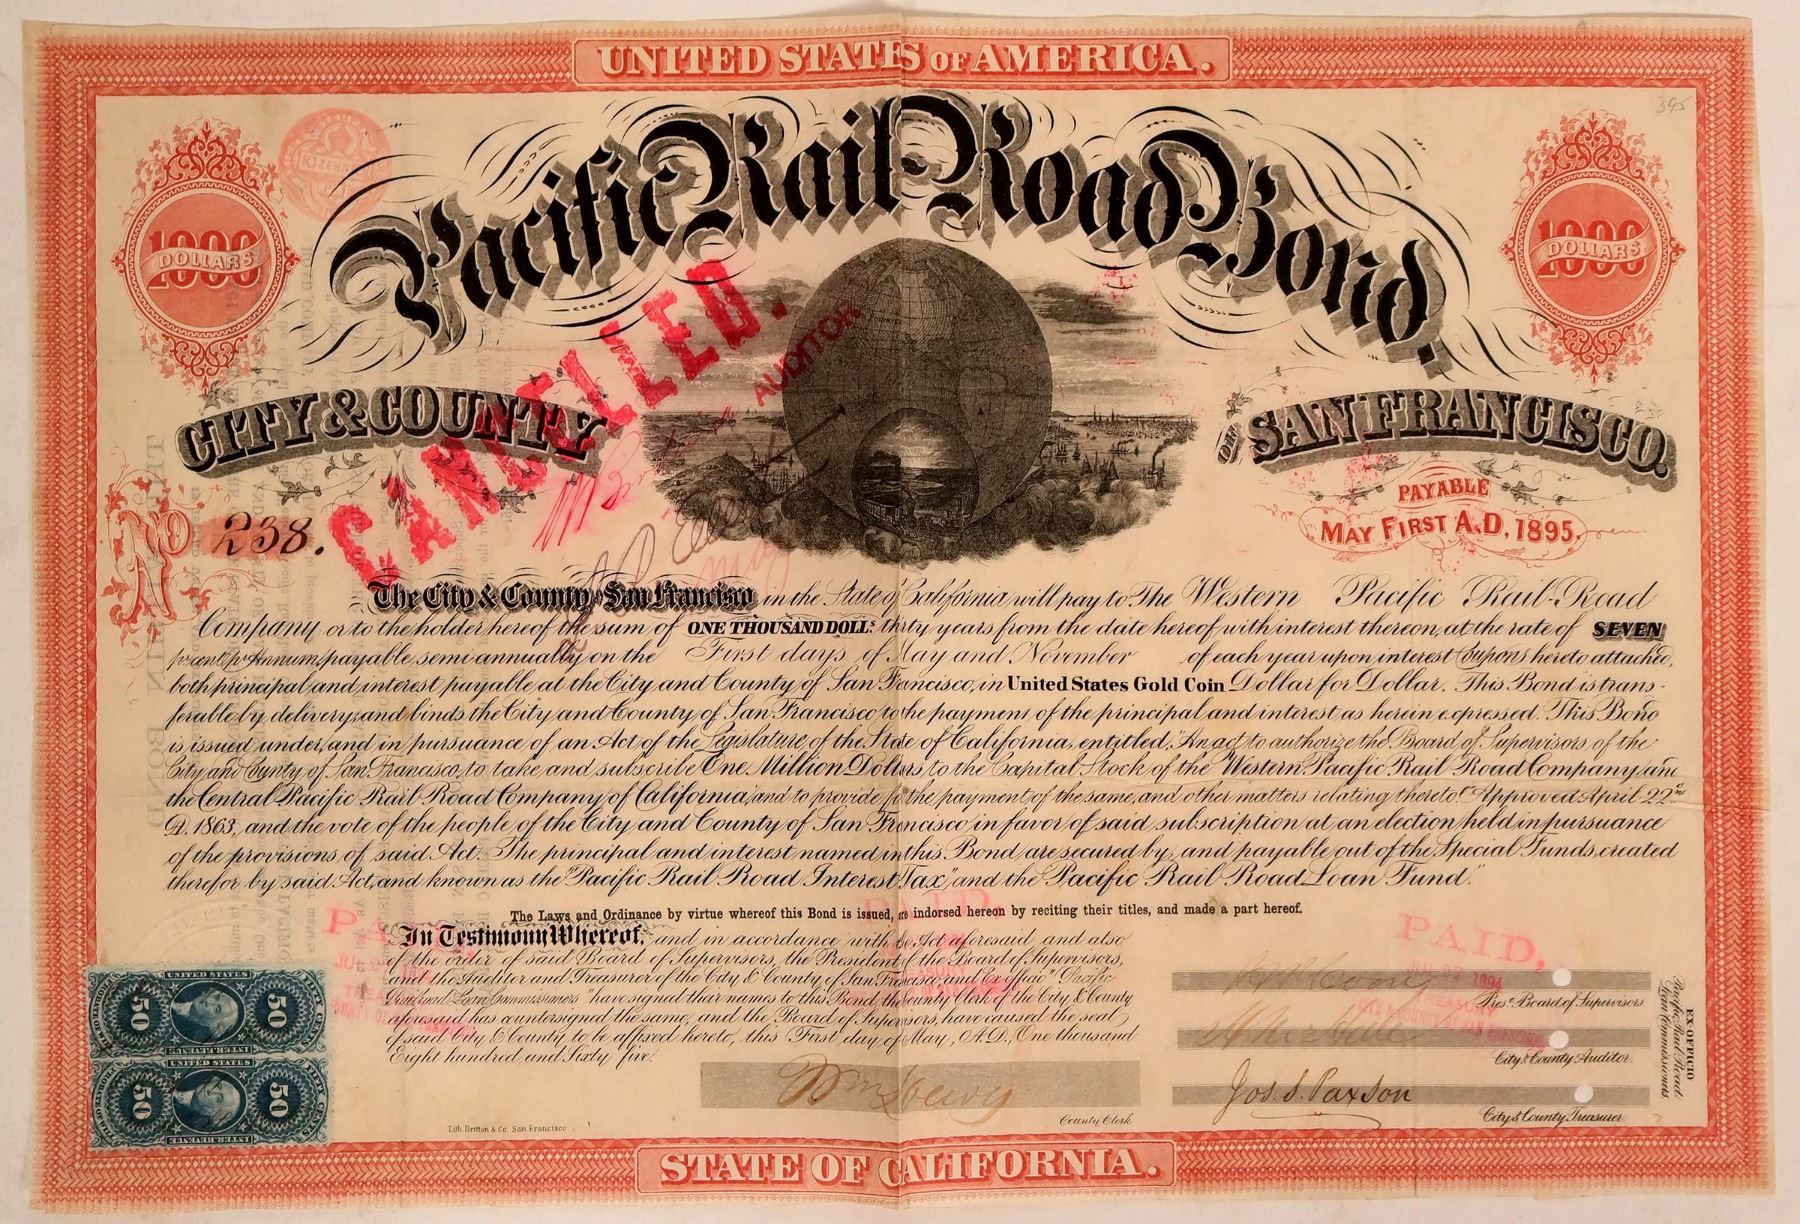 UNITED STATES OF AMERICA.
395
Pacific Rail-Road Bond.
1000
DOLLARS
1000
DOLLARS
CANCELLED.
AUDITOR
CITY & COUNTY
OF SAN FRANCISCO.
PAYABLE
MAY FIRST A.D. 1895.
No 238.
The City & County of San Francisco in the State of California will pay to The Western Pacific Rail-Road
Company or to the holder hereof the sum of ONE THOUSAND DOLLS. thirty years from the date hereof with interest thereon, at the rate of SEVEN
pr cent pr Annum, payable semi annually on the First days of May and November of each year upon interest Coupons hereto attached,
both principal and interest payable at the City and County of San Francisco, in United States Gold Coin Dollar for Dollar. This Bond is trans-
ferable by delivery, and binds the City and County of San Francisco to the payment of the principal and interest as herein expressed. This Bond
is issued under, and in pursuance of an Act of the Legislature of the State of California, entitled, "An act to authorize the Board of Supervisors of the
City and County of San Francisco, to take and subscribe One Million Dollars, to the Capital Stock of the Western Pacific Rail Road Company and
the Central Pacific Rail Road Company of California, and to provide for the payment of the same, and other matters relating thereto." Approved April 22nd
A. 1863, and the vote of the people of the City and County of San Francisco in favor of said subscription at an election held in pursuance
of the provisions of said Act. The principal and interest named in this Bond are secured by, and payable out of the Special Funds, created
therefor by said Act, and known as the "Pacific Rail Road Interest Tax," and the Pacific Rail Road Loan Fund."
The Laws and Ordinance by virtue whereof this Bond is issued, are indorsed hereon by reciting their titles, and made a part hereof.
In Testimony Whereof, and in accordance with the Act aforesaid, and also
of the order of said Board of Supervisors, the President of the Board of Supervisors,
and the Auditor and Treasurer of the City & County of San Francisco, and Ex-officio "Pacific
Railroad Loan Commissioners" have signed their names to this Bond, the County Clerk of the City & County
aforesaid has countersigned the same, and the Board of Supervisors, have caused the seal
of said City & County to be affixed hereto, this First day of May, A.D. One thousand
Eight hundred and Sixty five.
PAID,
1894
Pres. Board of Supervisors
City & County Auditor.
Jos. S. Paxson
City & County Treasurer.
EX OFFICIO
Pacific Rail Road
Loan Commissioners
Wm Loewy
County Clerk
UNITED STATES
50
50
INTER. REVENUE
UNITED STATES
50
50
INTER. REVENUE
Lith Britton & Co. San Francisco
STATE OF CALIFORNIA.